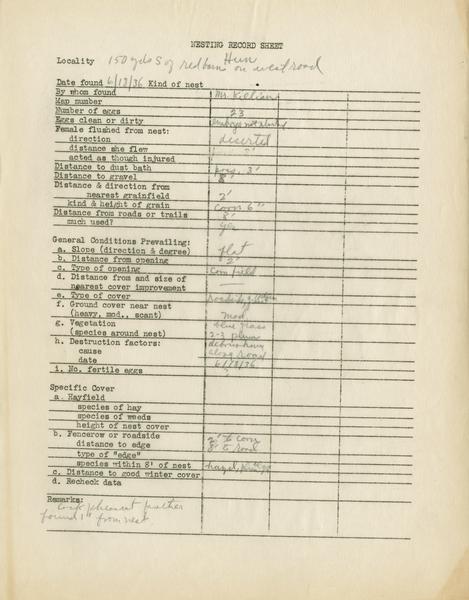 NESTING RECORD SHEET
Hun
Locality 150 yds S of red barn on west road
Date found 6/13/36 Kind of nest
By whom found Mr. Killian
Map number
Number of eggs 23
Eggs clean or dirty
Female flushed from nest: deserted
direction
distance she flew
acted as though injured
Distance to dust bath 3'
Distance to gravel 8'
Distance & direction from
nearest grainfield 2'
kind & height of grain Corn 6"
Distance from roads or trails 8'
much used? yes
General Conditions Prevailing:
a. Slope (direction & degree) flat
b. Distance from opening 2'
c. Type of opening Corn field
d. Distance from and size of
nearest cover improvement —
e. Type of cover Roadside
f. Ground cover near nest
(heavy, mod., scant) Mod
g. Vegetation blue grass
(species around nest) 2-3 plum
h. Destruction factors:
cause along road
date 6/13/36
i. No. fertile eggs ?
Specific Cover
a. Hayfield
species of hay
species of weeds
height of nest cover
b. Fencerow or roadside 2' to corn
distance to edge 8' to road
type of "edge"
species within 8' of nest hazel
c. Distance to good winter cover
d. Recheck data
Remarks:
Cock pheasant feather
found 1" from nest